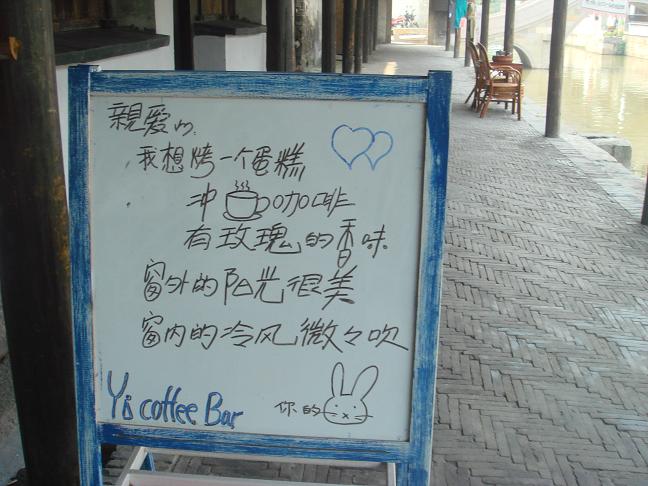 親爱的.
我想烤一个蛋糕
冲咖啡
有玫瑰的香味
窗外的阳光很美
窗内的冷风微々吹
你的
Yi coffee Bar